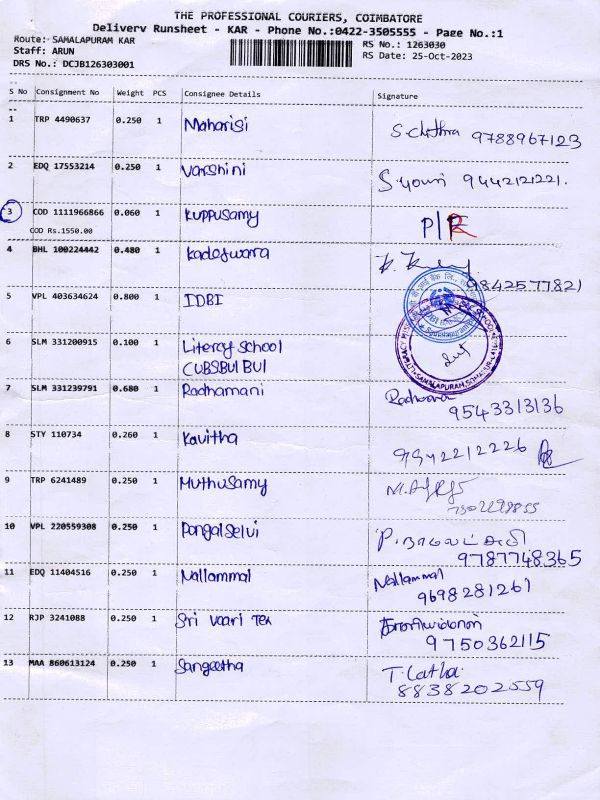 THE PROFESSIONAL COURIERS, COIMBATORE
Delivery Runsheet - KAR - Phone No.:0422-3505555 - Page No.:1
Route: SAMALAPURAM KAR RS No.: 1263030
Staff: ARUN RS Date: 25-Oct-2023
DRS No.: DCJB126303001
S No Consignment No Weight PCS Consignee Details Signature
1 TRP 4490637 0.250 1 Maharisi S.chithra 9788967123
2 EDQ 17553214 0.250 1 Varshini 9442121221.
3 COD 1111966866 0.060 1 Kuppusamy
COD Rs.1550.00
4 BHL 100224442 0.480 1 9842577821
5 VPL 403634624 0.800 1 IDBI
6 SLM 331200915 0.100 1 Litercy School
CUBSBULBUL
7 SLM 331239791 0.680 1 Radhamani
9543313136
8 STY 110734 0.260 1 Kavitha 9942212226
9 TRP 6241489 0.250 1 Muthusamy
10 VPL 220559308 0.250 1 Pongalselvi
9787748365
11 EDQ 11404516 0.250 1 Nallammal Nallammal
9698281261
12 RJP 3241088 0.250 1 Sri Vaari Tex
9750362115
13 MAA 860613124 0.250 1 Sangeetha T. Latha.
8838202559